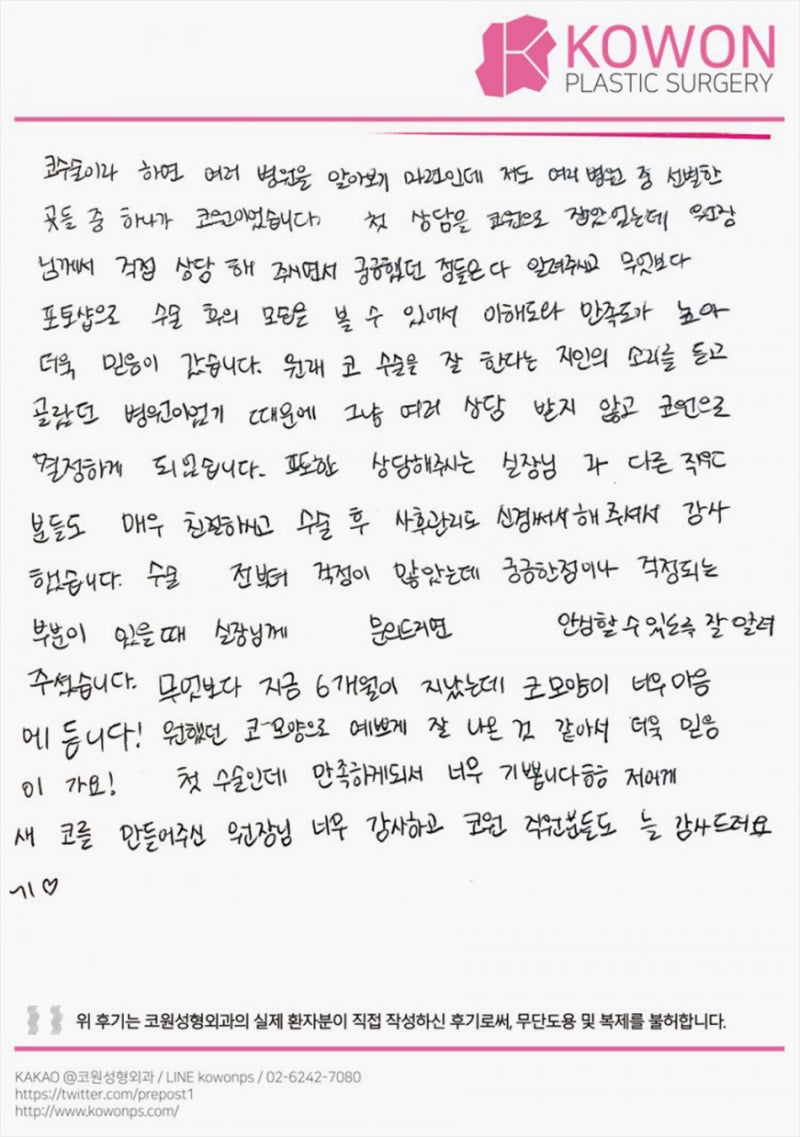 KOWON
PLASTIC SURGERY
코수술이라 하면 여러 병원을 알아보기 마련인데 저도 여러 병원 중 선별한
곳들 중 하나가 코원이었습니다. 첫 상담을 코원으로 잡았었는데 원장
님께서 직접 상담 해 주시면서 궁금했던 점들은 다 알려주시고 무엇보다
포토샵으로 수술 후의 모습을 볼 수 있어서 이해도와 만족도가 높아
더욱 믿음이 갔습니다. 원래 코 수술을 잘 한다는 지인의 소리를 듣고
골랐던 병원이었기 때문에 그냥 여러 상담 받지 않고 코원으로
결정하게 되었습니다. 또한 상담해주시는 실장님 과 다른 직원
분들도 매우 친절하시고 수술 후 사후관리도 신경써서 해 주셔서 감사
했습니다. 수술 전부터 걱정이 많았는데 궁금한점이나 걱정되는
부분이 있을때 실장님께 문의드리면 안심할 수 있도록 잘 알려
주셨습니다. 무엇보다 지금 6개월이 지났는데 코모양이 너무 마음
에 듭니다! 원했던 코모양으로 예쁘게 잘 나온 것 같아서 더욱 믿음
이 가요! 첫 수술인데 만족하게되서 너무 기쁩니다ㅎㅎ 저에게
새 코를 만들어주신 원장님 너무 감사하고 코원 직원분들도 늘 감사드려요
~! ♡
위 후기는 코원성형외과의 실제 환자분이 직접 작성하신 후기로써, 무단도용 및 복제를 불허합니다.
KAKAO @코원성형외과 / LINE kowonps / 02-6242-7080
https://twitter.com/prepost1
http://www.kowonps.com/